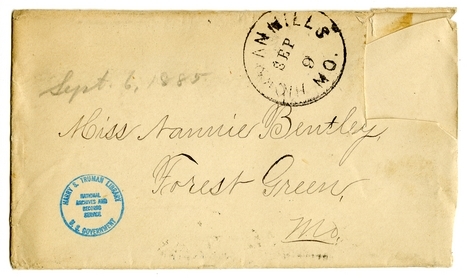 HICKMAN MILLS
MO.
SEP
9
Sept. 6, 1885
Miss Nannie Bentley,
Forest Green,
Mo.
HARRY S. TRUMAN LIBRARY
NATIONAL
ARCHIVES AND
RECORDS
SERVICE
U. S. GOVERNMENT